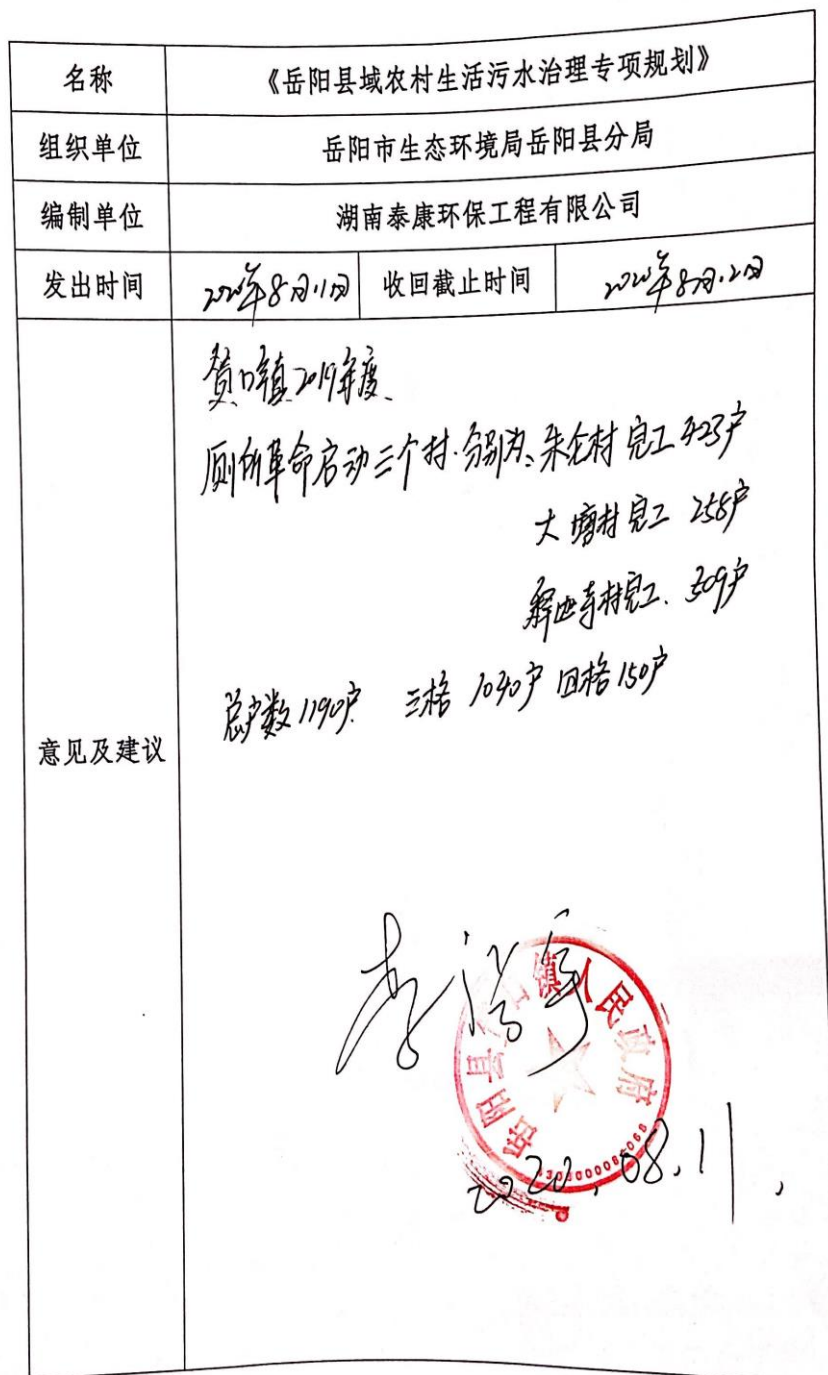 名称 《岳阳县域农村生活污水治理专项规划》
组织单位 岳阳市生态环境局岳阳县分局
编制单位 湖南泰康环保工程有限公司
发出时间 2020年8月11日 收回截止时间 2020年8月12日
筻口镇2019年度、
厕所革命启动三个村.分别为:朱仑村 完工 423户
大塘村完工 258户
村完工. 509户
总户数1190户 三格 1040户 四格150户
意见及建议
岳阳县筻口镇人民政府
2020.08.11.